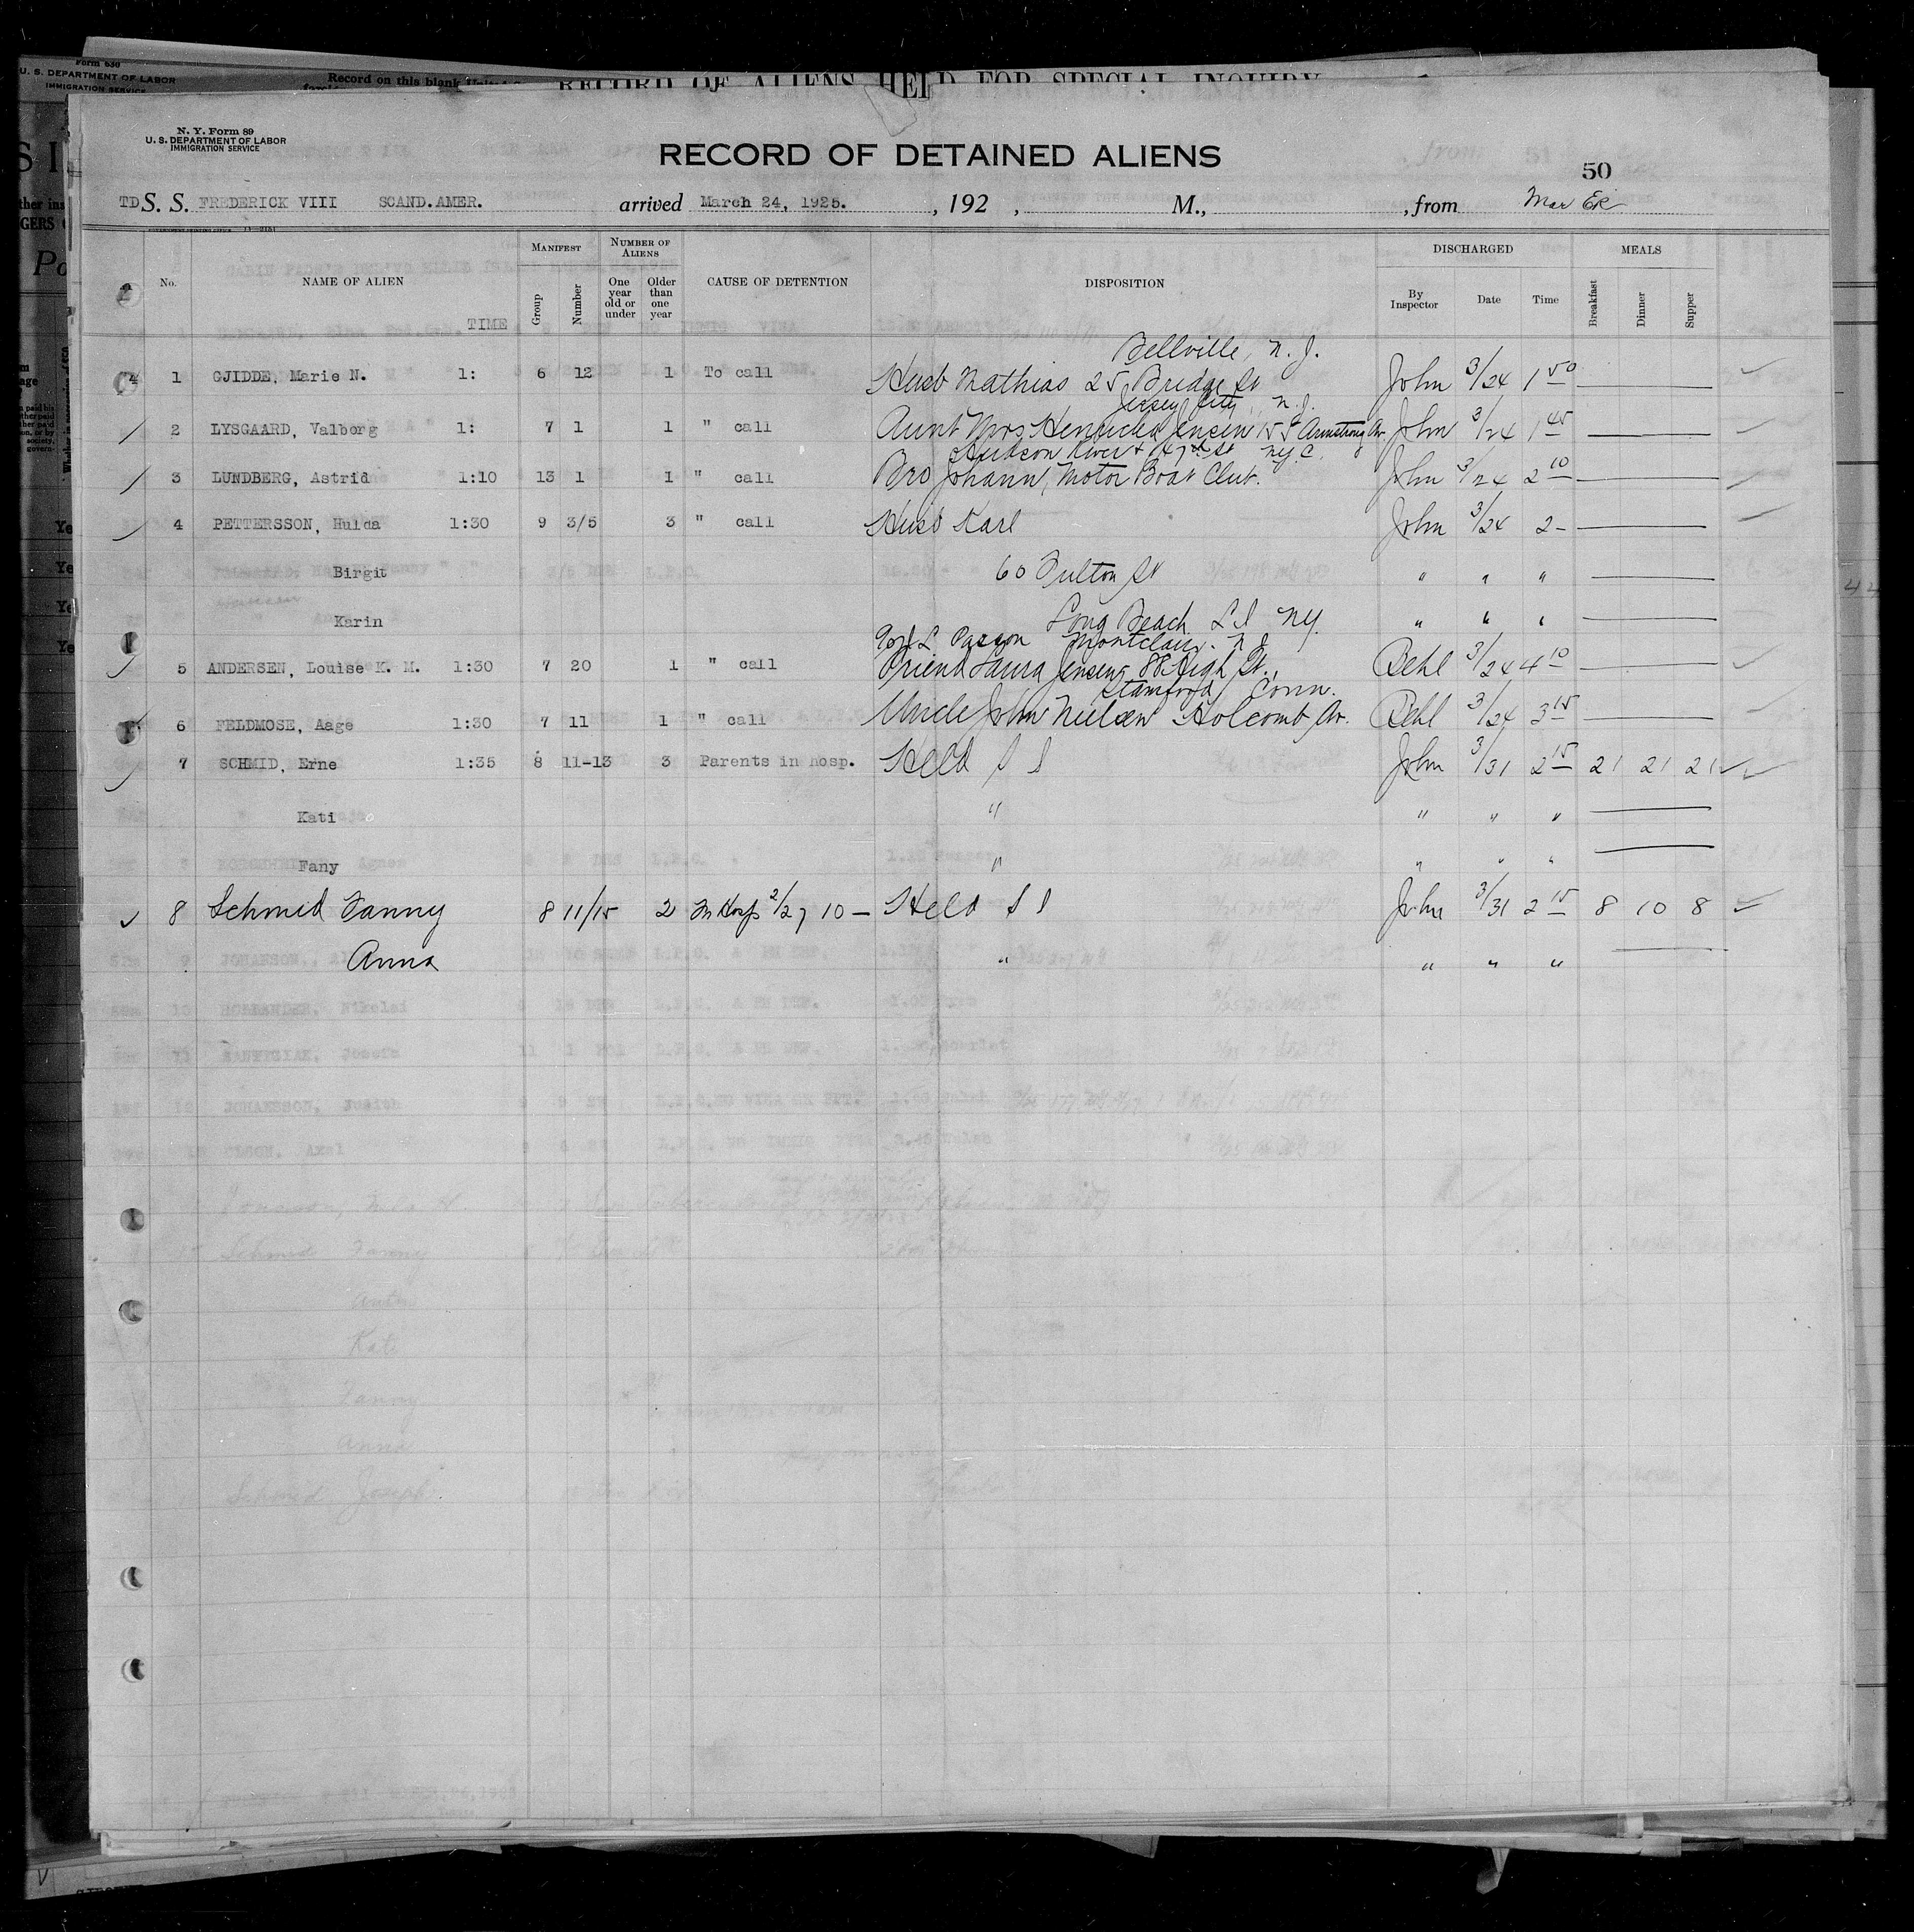 Form 630
U. S. DEPARTMENT OF LABOR
IMMIGRATION SERVICE
Record on this blank
RECORD OF ALIENS HELD FOR SPECIAL INQUIRY
N. Y. Form 89
U. S. DEPARTMENT OF LABOR
IMMIGRATION SERVICE
RECORD OF DETAINED ALIENS
50
TD S. S. FREDERICK VIII SCAND.AMER. arrived March 24, 1925. , 192 , M., , from Mar
No. NAME OF ALIEN TIME MANIFEST Group Number NUMBER OF ALIENS One year old or under Older than one year CAUSE OF DETENTION DISPOSITION DISCHARGED By Inspector Date Time MEALS Breakfast Dinner Supper
Bellville, N. J.
1 GJIDDE, Marie N. 1: 6 12 1 To call Husb Mathias 25 Bridge St John 3/24 1 50
Jersey City, N. J.
2 LYSGAARD, Valborg 1: 7 1 1 " call Aunt Mrs Jensen Armstrong Av John 3/24 1 45
Hudson River + St NYC.
3 LUNDBERG, Astrid 1:10 13 1 1 " call Bro Johann, Motor Boat Club. John 3/24 2 10
4 PETTERSSON, Hulda 1:30 9 3/5 3 " call Husb Karl John 3/24 2-
Birgit 60 Fulton St " " "
Karin Long Beach L I NY. " " "
Montclair. N J
5 ANDERSEN, Louise K. M. 1:30 7 20 1 " call Friend Laura Jensen, 88 High St., Behl 3/24 4 10
Stamford, Conn.
6 FELDMOSE, Aage 1:30 7 11 1 " call Uncle John Nielsen Holcomb Av. Behl 3/24 3 15
7 SCHMID, Erne 1:35 8 11-13 3 Parents in hosp. Held S I John 3/31 2 15 21 21 21
Kati " " " "
Fany " " " "
8 Schmid Fanny 8 11/15 2 In Hosp 10- Held S I John 3/31 2 15 8 10 8
Anna " " " "